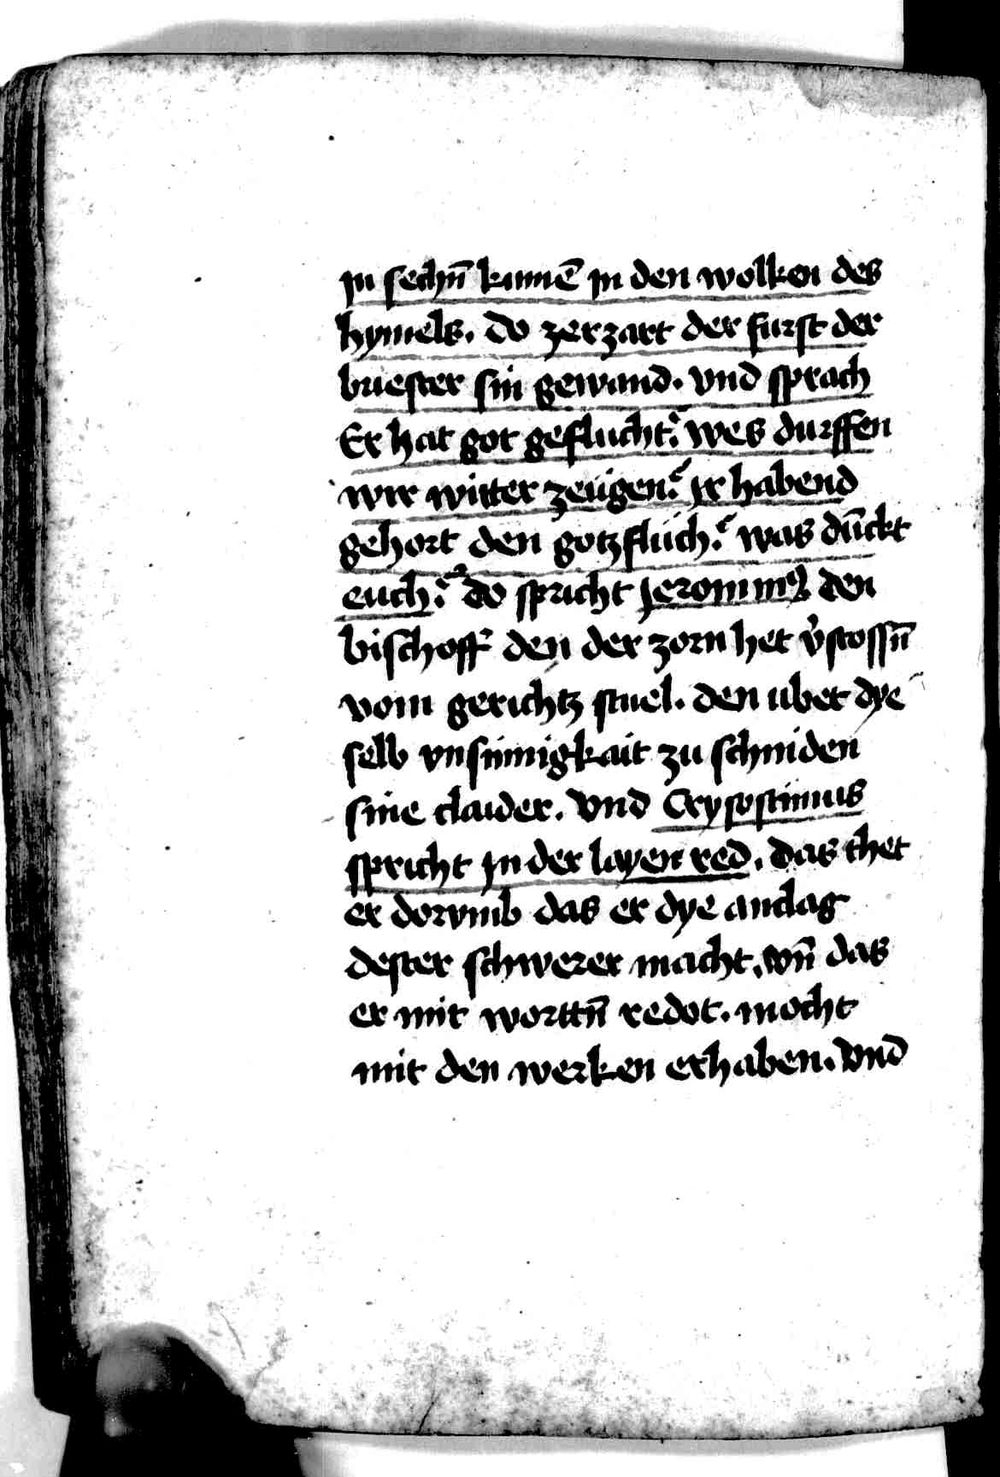 in sechn̄ kumē in den wolken des
hymels. do zerzart der furst der
briester sin gewand. vnd sprach
Er hat got geflucht? wes durffen
wir witter zeugen? Ir habend
gehort den gotzfluch? was dūckt
euch? do spricht Jeronimꝰ den
bischoff den der zorn het v̉stossn̄
vom gerichtz stuel. den ubet dye
selb vnsinnigkait zu schniden
sine claider. vnd Crysostimus
spricht In der layen red. das thet
er dorvmb das er dye anclag
dester schwerer macht. wn̄ das
er mit worttn̄ redot. mocht
mit den werken erhaben. vnd